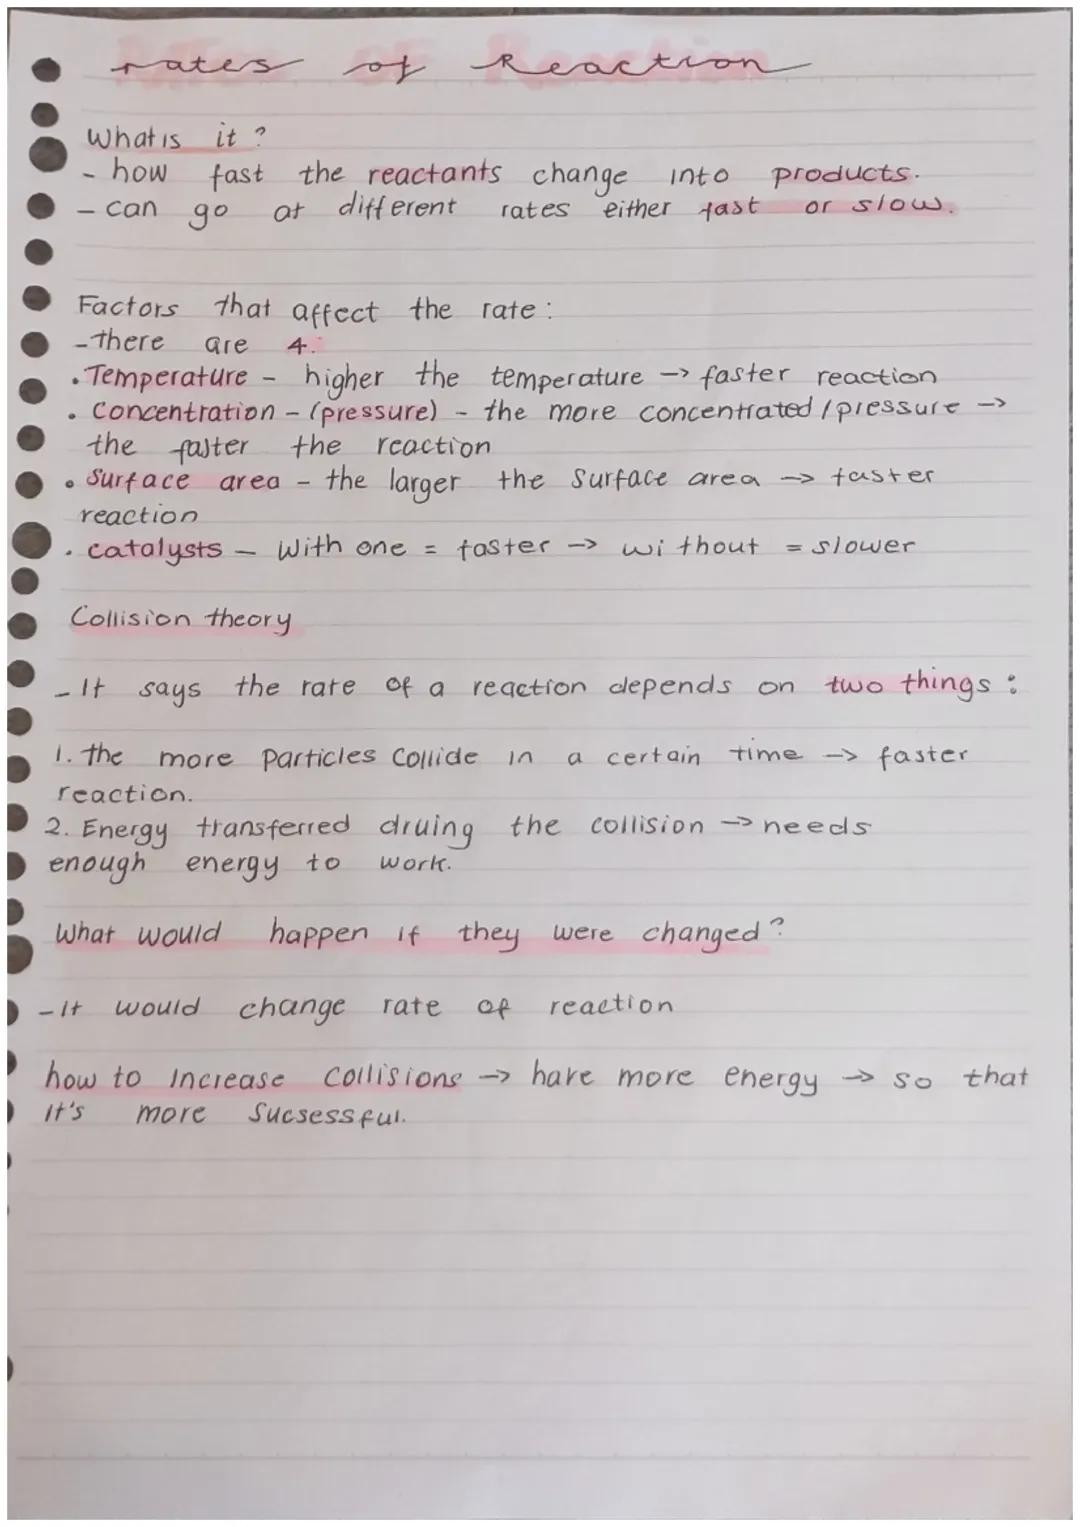 rates of Reaction
What is it ?
- how fast the reactants change into products.
- can go at different rates either fast or slow.
Factors that affect the rate :
- there are 4.
• Temperature - higher the temperature → faster reaction
• Concentration - (pressure) - the more concentrated / pressure →
the faster the reaction
• Surface area - the larger the surface area → faster
reaction
• catalysts - With one = faster → without = slower
Collision theory
- It says the rate of a reaction depends on two things :
1. the more particles collide in a certain time → faster
reaction.
2. Energy transferred druing the collision → needs
enough energy to work.
What would happen if they were changed ?
- It would change rate of reaction
how to increase collisions → have more energy → so that
it's more sucsessful.